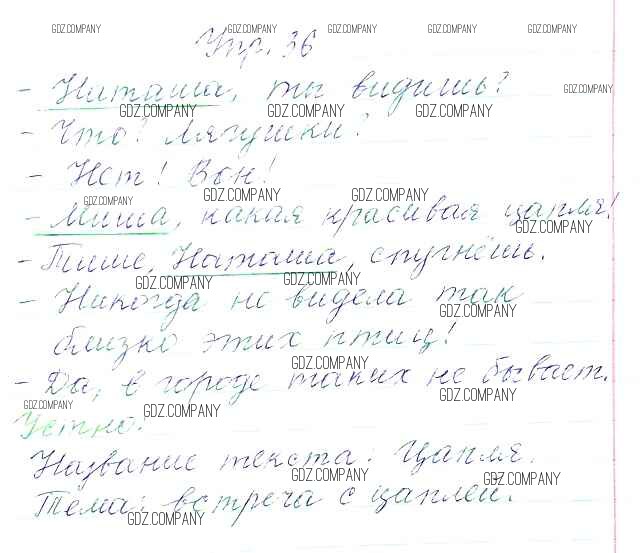 GDZ.COMPANY GDZ.COMPANY GDZ.COMPANY GDZ.COMPANY GDZ.COMPANY
Упр. 36
- Наташа, ты видишь?
GDZ.COMPANY
GDZ.COMPANY GDZ.COMPANY GDZ.COMPANY
- Что? Лягушки?
- Нет! Вон!
GDZ.COMPANY GDZ.COMPANY GDZ.COMPANY
- Миша, какая красивая цапля!
GDZ.COMPANY
- Тише, Наташа, спугнёшь.
GDZ.COMPANY GDZ.COMPANY
- Никогда не видела так
GDZ.COMPANY
близко этих птиц!
GDZ.COMPANY
- Да, в городе таких не бывает.
GDZ.COMPANY GDZ.COMPANY GDZ.COMPANY
Устно:
Название текста: Цапля.
GDZ.COMPANY GDZ.COMPANY
Тема: встреча с цаплей.
GDZ.COMPANY